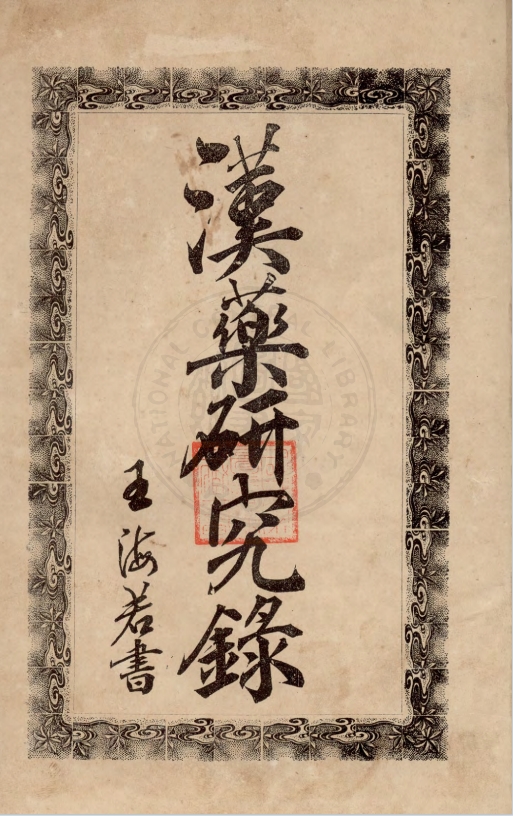 漢藥研究錄
王海若書
NATIONAL LIBRARY